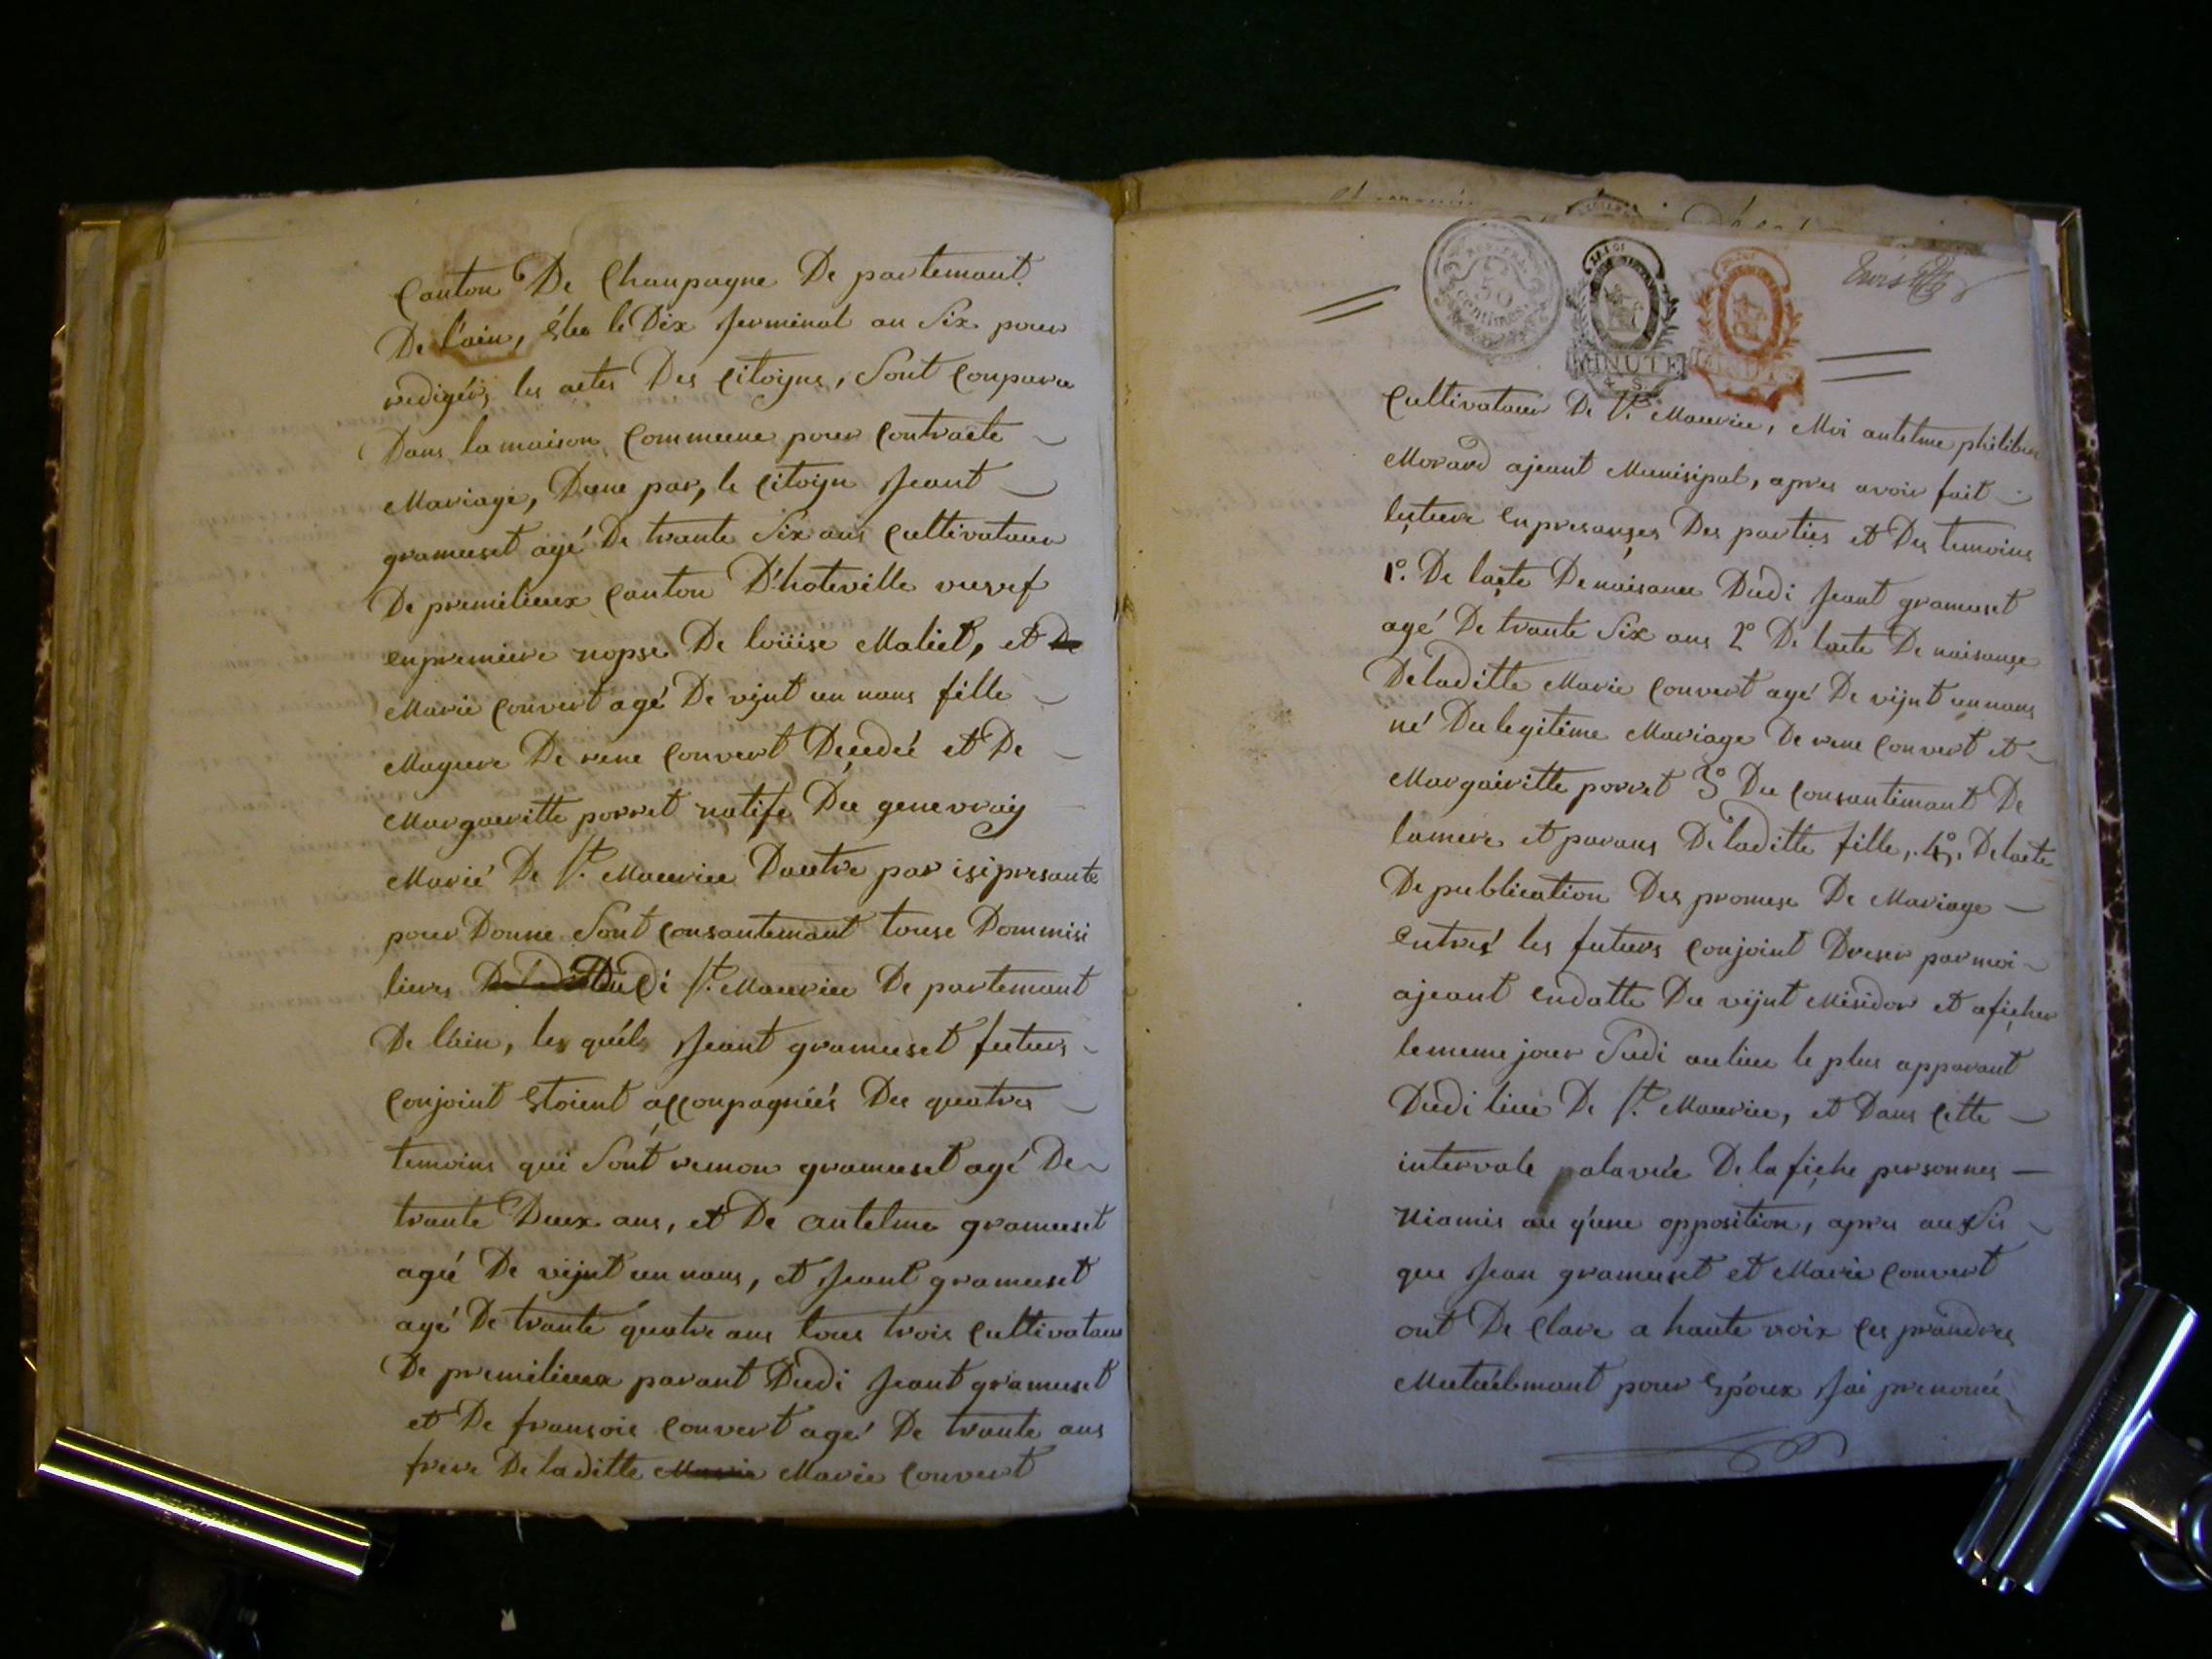 Canton De Champagne De partemant
De l'ain, élu le Dix jerminal an Six pour
redigér les actes Des Citoyns, Sont Conparu
Dans la maison Commune pour Contracte
Mariage, Dune par, le Citoyn Jeant
gramuset agé De trante Six ans Cultivateur
De premilieux Canton D'hoteville veuvf
enpremiere nopse De loüise Maliet, et De
Marie Convert agé De vijnt un nans fille
Mayeure De rene Convert Deçedeé et De
Margueritte porret natife Du genevray
Marié De St. Maurice Dautre par isi presante
pour Donne Sont Consantemant touse Dommisi
liers Dudi St. Maurice De partemant
De l'ain, les quél Jeant gramuset futurs
Conjoint Etoient acConpagnéés Du quatres
temoins qui Sont remon gramuset agé De
trante Deux ans, et De antelme gramuset
agé De vijnt un nans, et Jeant gramuset
agé De trante quatre ans tous trois Cultivateur
De premilieux parant Dudi Jeant gramuset
et De fransois Convert agé De trante ans
frere De laditte Marie Marie Convert
50
Centimes
MINUTE
MINUTE
Cultivateur De St. Maurice, Moi antelme philiber
Morard ajeant Munisipal, apres avoir fait
lecture enpresanses Des parties et Des temoins
1º. De lacte De naisance Dudi Jeant gramuset
agé De trante Six ans 2º De lacte De naisançe
De laditte Marie Convert agé De vijnt un nans
né Du legitime Mariage De rene Convert et
Margairitte porret 3º Du Consantimant De
lamere et parans De laditte fille, 4º. De lacte
De publication Des promese De Mariage
entres les futurs Conjoint Dreser par moi
ajeant endatte Du vijnt Misidor et afiçher
le meme jour Sudi au lieu le plus apparant
Dudi lieu De St. Maurice, et Dans Cette
intervale palavée De lafiçhe personnes
Niamis au q'une opposition, apres aussis
que Jean gramuset et Marie Convert
ont De Clare a haute voix Ces prandres
Mutuélemant pour Epóux Jai prenoncé